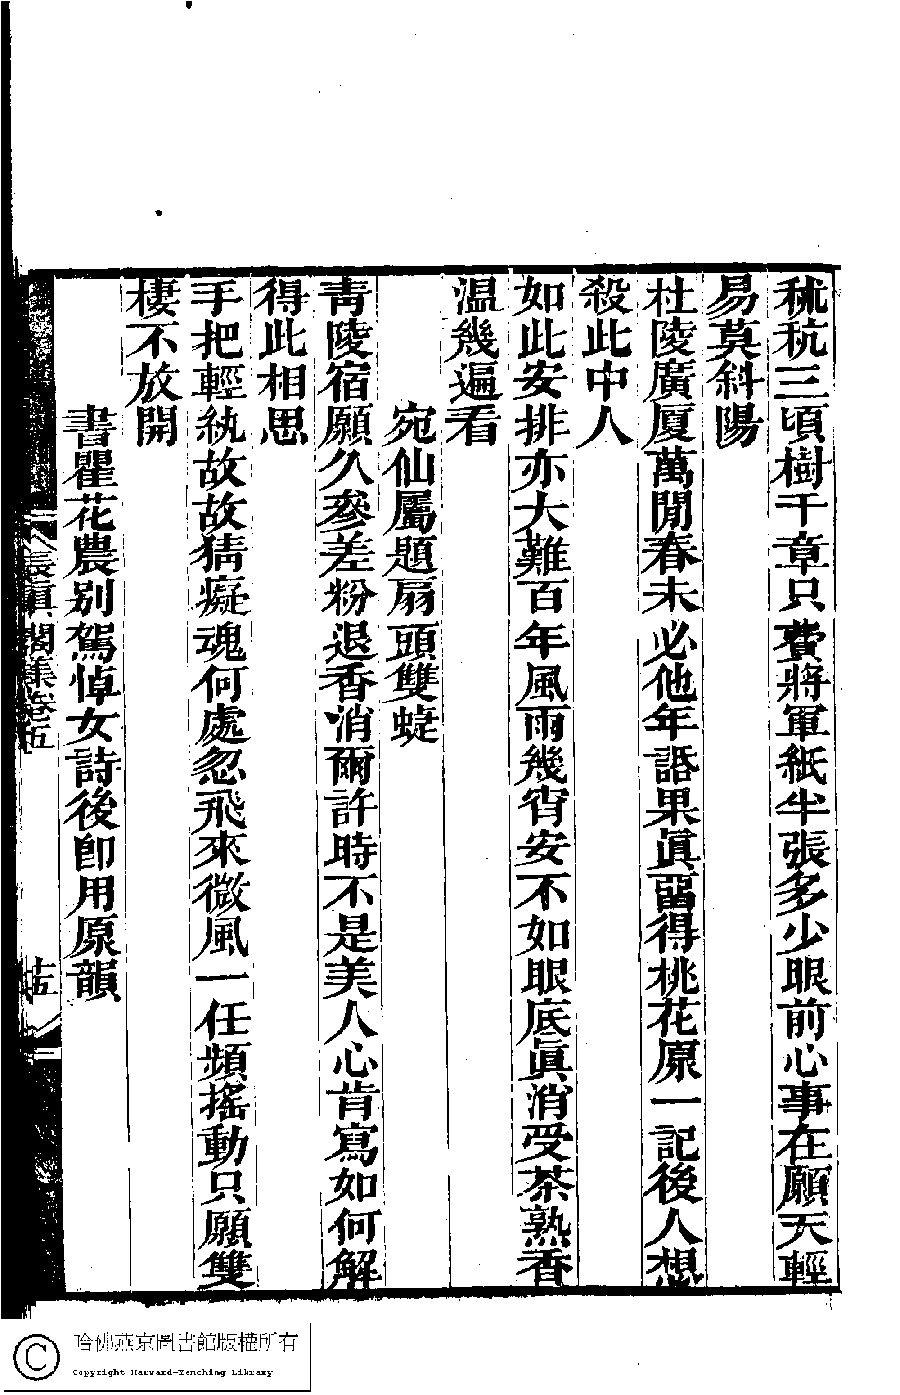 秫秔三頃樹千章只費將軍紙半張多少眼前心事在願天輕
易莫斜陽
杜陵廣厦萬閒春未必他年語果眞畱得桃花原一記後人想
殺此中人
如此安排亦大難百年風雨幾宵安不如眼底眞消受茶熟香
温幾遍看
宛仙屬題扇頭雙蜨
靑陵宿願久參差粉退香消爾許時不是美人心肯寫如何解
得此相思
手把輕紈故故猜癡魂何處忽飛來微風一任頻搖動只願雙
棲不放開
書瞿花農別駕悼女詩後卽用原韻
長眞閣集卷五
十五
哈佛燕京圖書館版權所有
Copyright Harvard-Yenching Library